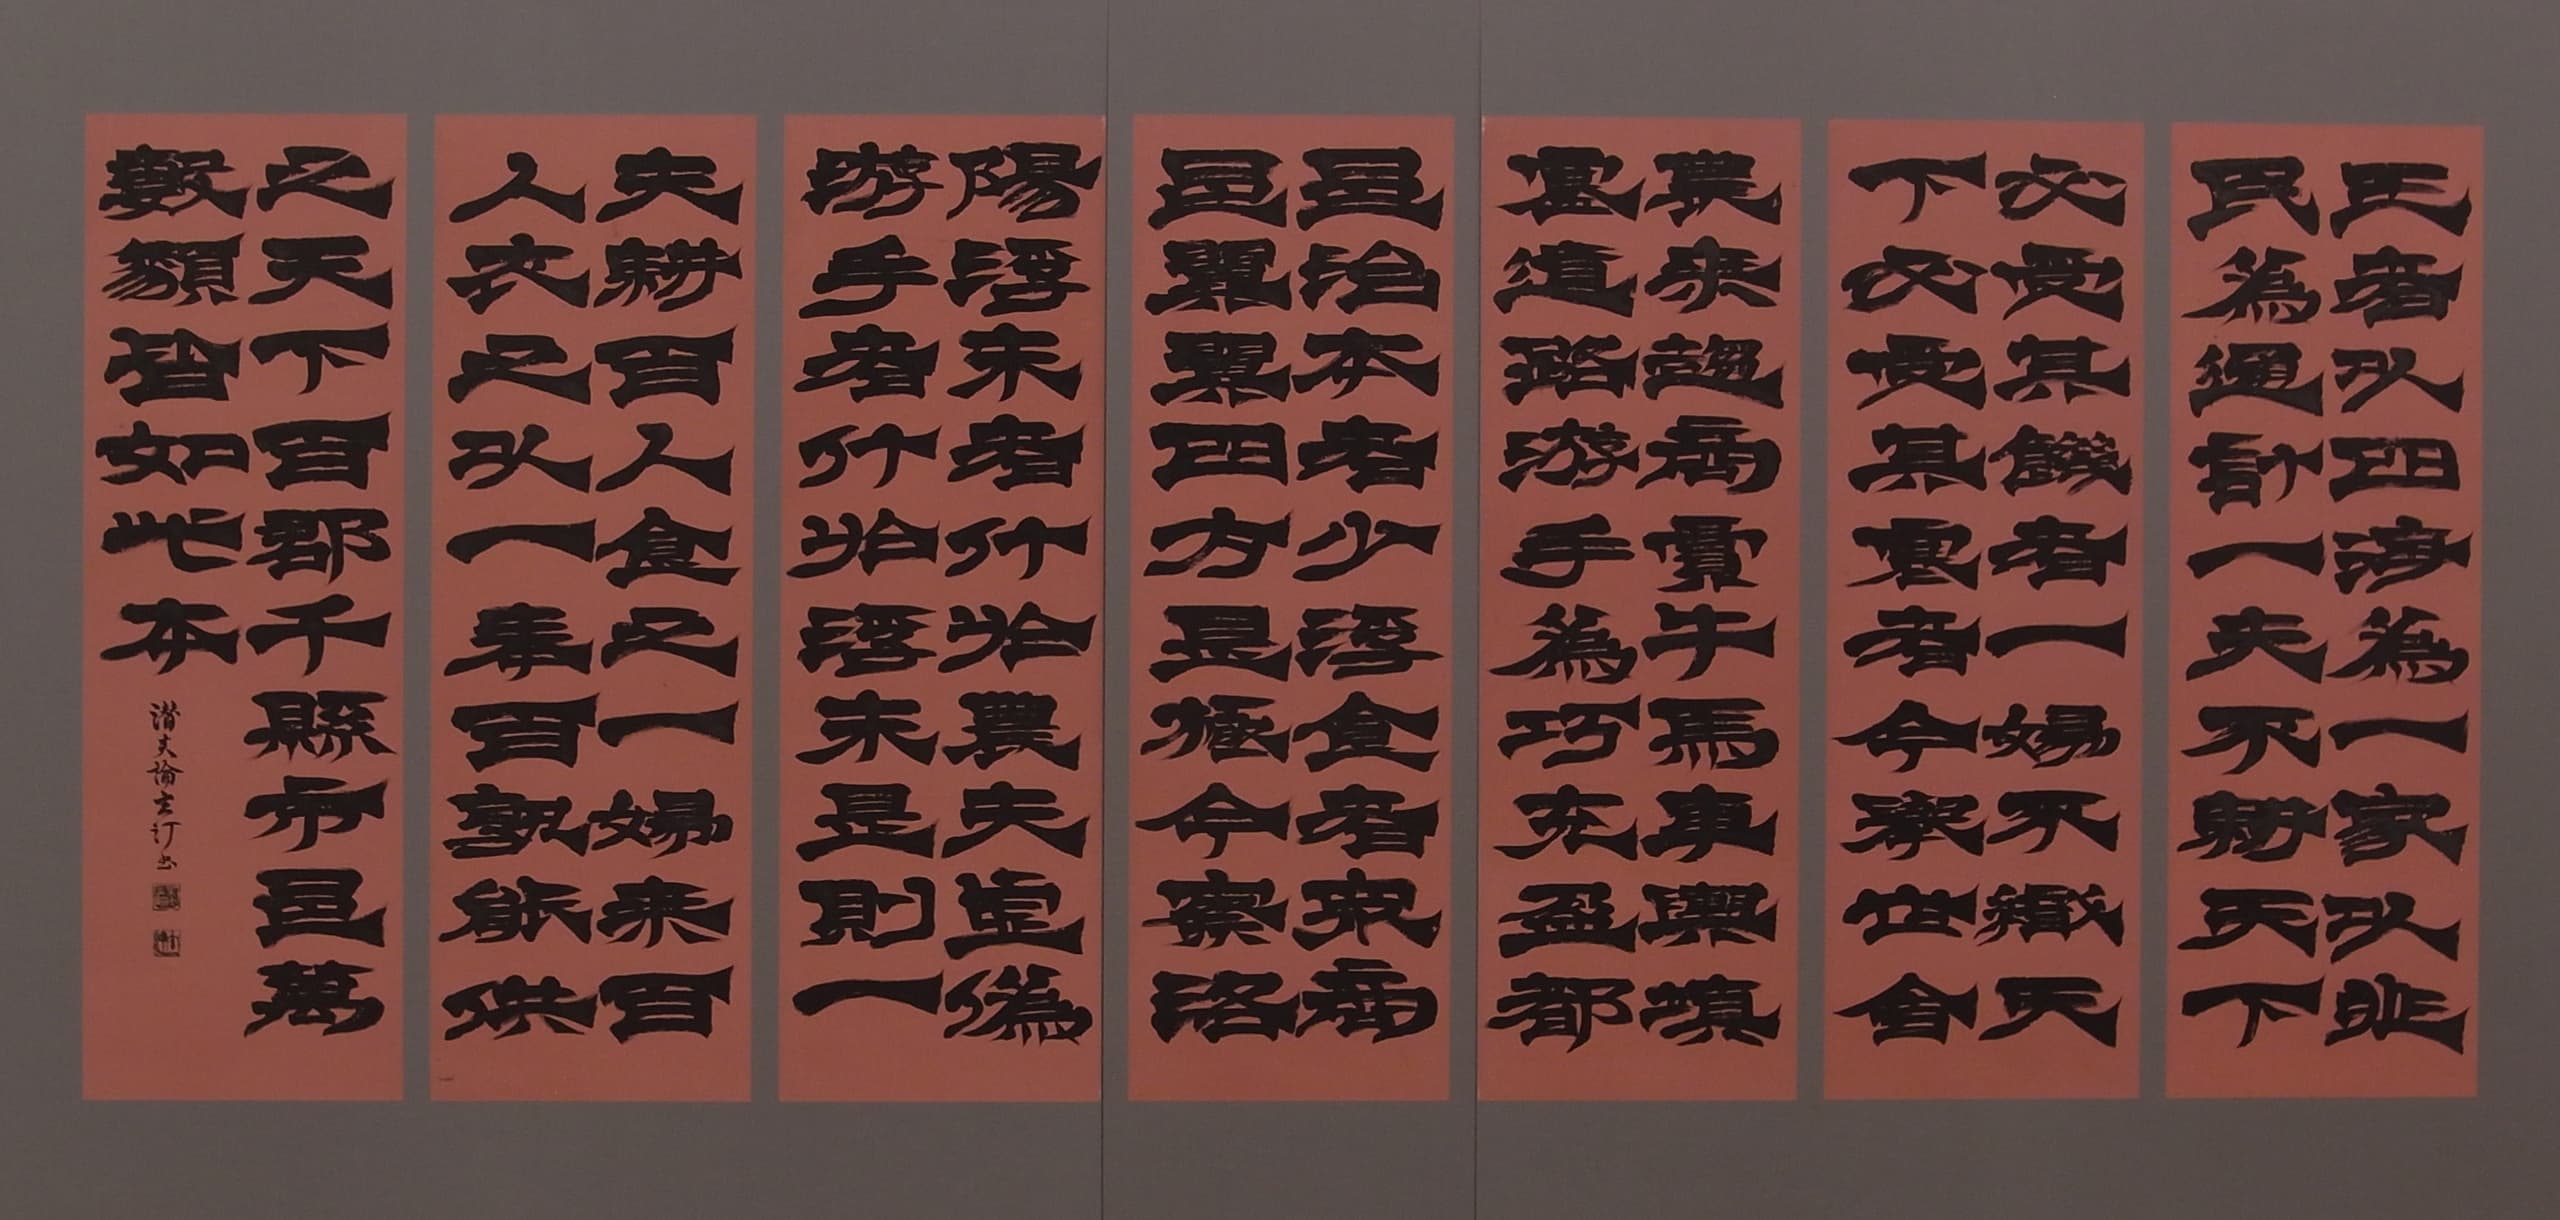 王者以四海為一家以兆
民為通計一夫不耕天下
必受其饑者一婦不織天
下必受其寒者今舉世舍
農桑趨商賈牛馬車輿填
塞道路游手為巧充盈都
邑治本者少浮食者眾商
邑翼翼四方是極今察洛
陽浮末者什於農夫虛偽
游手者什於浮末是則一
夫耕百人食之一婦桑百
人衣之以一奉百孰能供
之天下百郡千縣市邑萬
數類皆如此本
潛夫論玄汀书